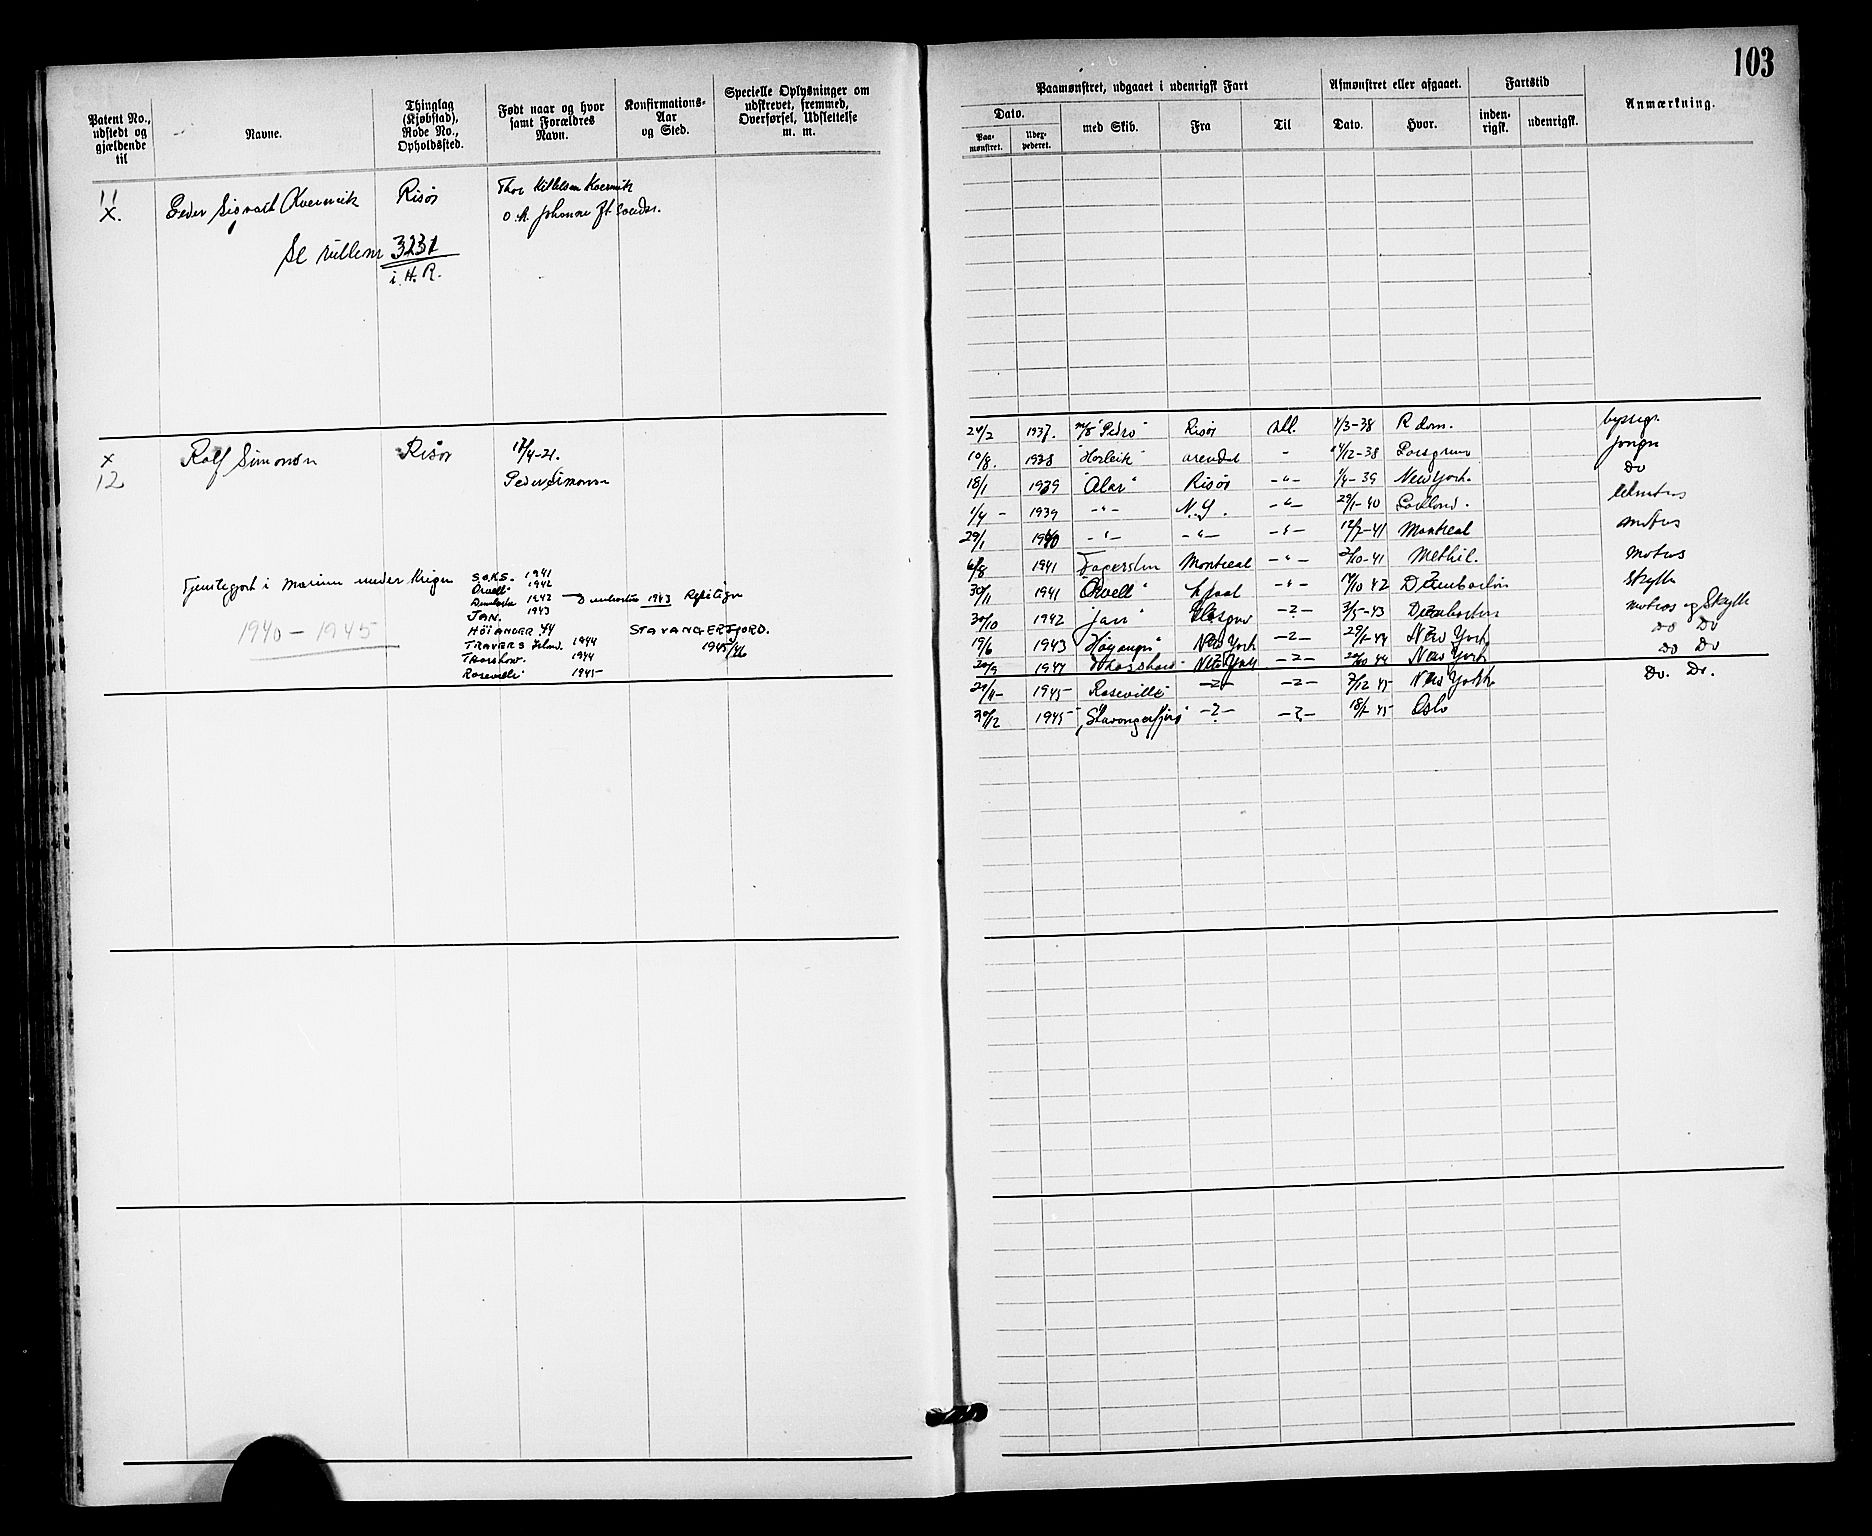 103
Patent No., udstedt og gjældende til
Navne.
Thinglag (Kjøbstad), Rode No., Opholdssted.
Født naar og hvor samt Forældres Navn.
Konfirmations-Aar og Sted.
Specielle Oplysninger om udskrevet, fremmed, Overførsel, Udslettelse m. m.
Paamønstret, udgaaet i udenrigsk Fart
Afmønstret eller afgaaet.
Fartstid
Anmærkning.
Dato.
Paa-mønstret.
Udex-pederet.
med Skib.
Fra
Til
Dato.
Hvor.
inden-rigsk.
udenrigsk.
11
X.
Peder Sigvart Kvernvik Risør Thor Kittelsen Kvernvik
o. h. Johanne
Se rullenr 3231
i H. R.
x
12
Rolf Simonsen Risør 17/4-21.
Peder Simonsen
Tjenstegjort i marinen under krigen
1940 - 1945
S.O.K.S. 1941
Orwell 1942
1942 - Dumbarton 1943
JAN. 1943
HÖIANGER 44 STAVANGERFJORD.
TRAVERS 1944 1945/46
Thorshov. 1944
Roseville 1945
24/2 1937. m/s "Pedro" Risør All. 1/3-38 R dam. byssegt.
10/8. 1938 "Horleik" Arendal - 14/12-38 Porsgrunn jungm
18/1 1939 "Alar" Risør -"- 1/4-39 New York. Do
1/4 - 1939 -"- N.Y. -"- 29/1-40
29/1 1940 -"- -"- -"- 12/7-41 Montreal
6/8 1941 Fagersten Montreal -"- 21/10-41 Methil. matros
30/11 1941 "Orwell" L.pool -"- 17/10 42 Dumbarton Skytte
30/10 1942 "Jan" Glasgow -"- 3/5-43 Dumbarton matros og Skytte
19/6 1943 "Høyanger" New York -"- 29/1-44 New York Do Do
20/9 1944 Thorshov New York -"- 20/10 44 New York Do Do
29/11- 1945 Roseville -"- -"- 7/12 45 New York Do. Do.
30/12 1945 "Stavangerfjord" -"- -"- 18/1-45 Oslo